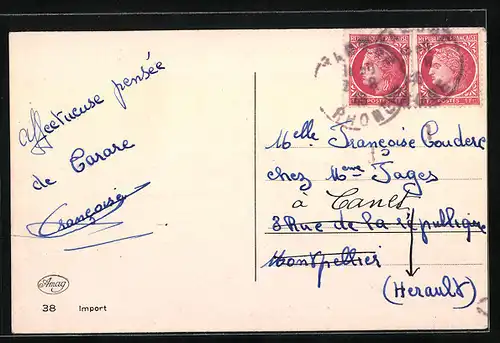 Affectueuse pensée
de Tarare
Françoise
Amag
38 Import
REPUBLIQUE FRANÇAISE REPUBLIQUE FRANÇAISE
POSTES POSTES
RHONE
Melle Françoise Couderc
chez Mme Fages
à Canet
3 Rue de la république
Montpellier
(Herault)